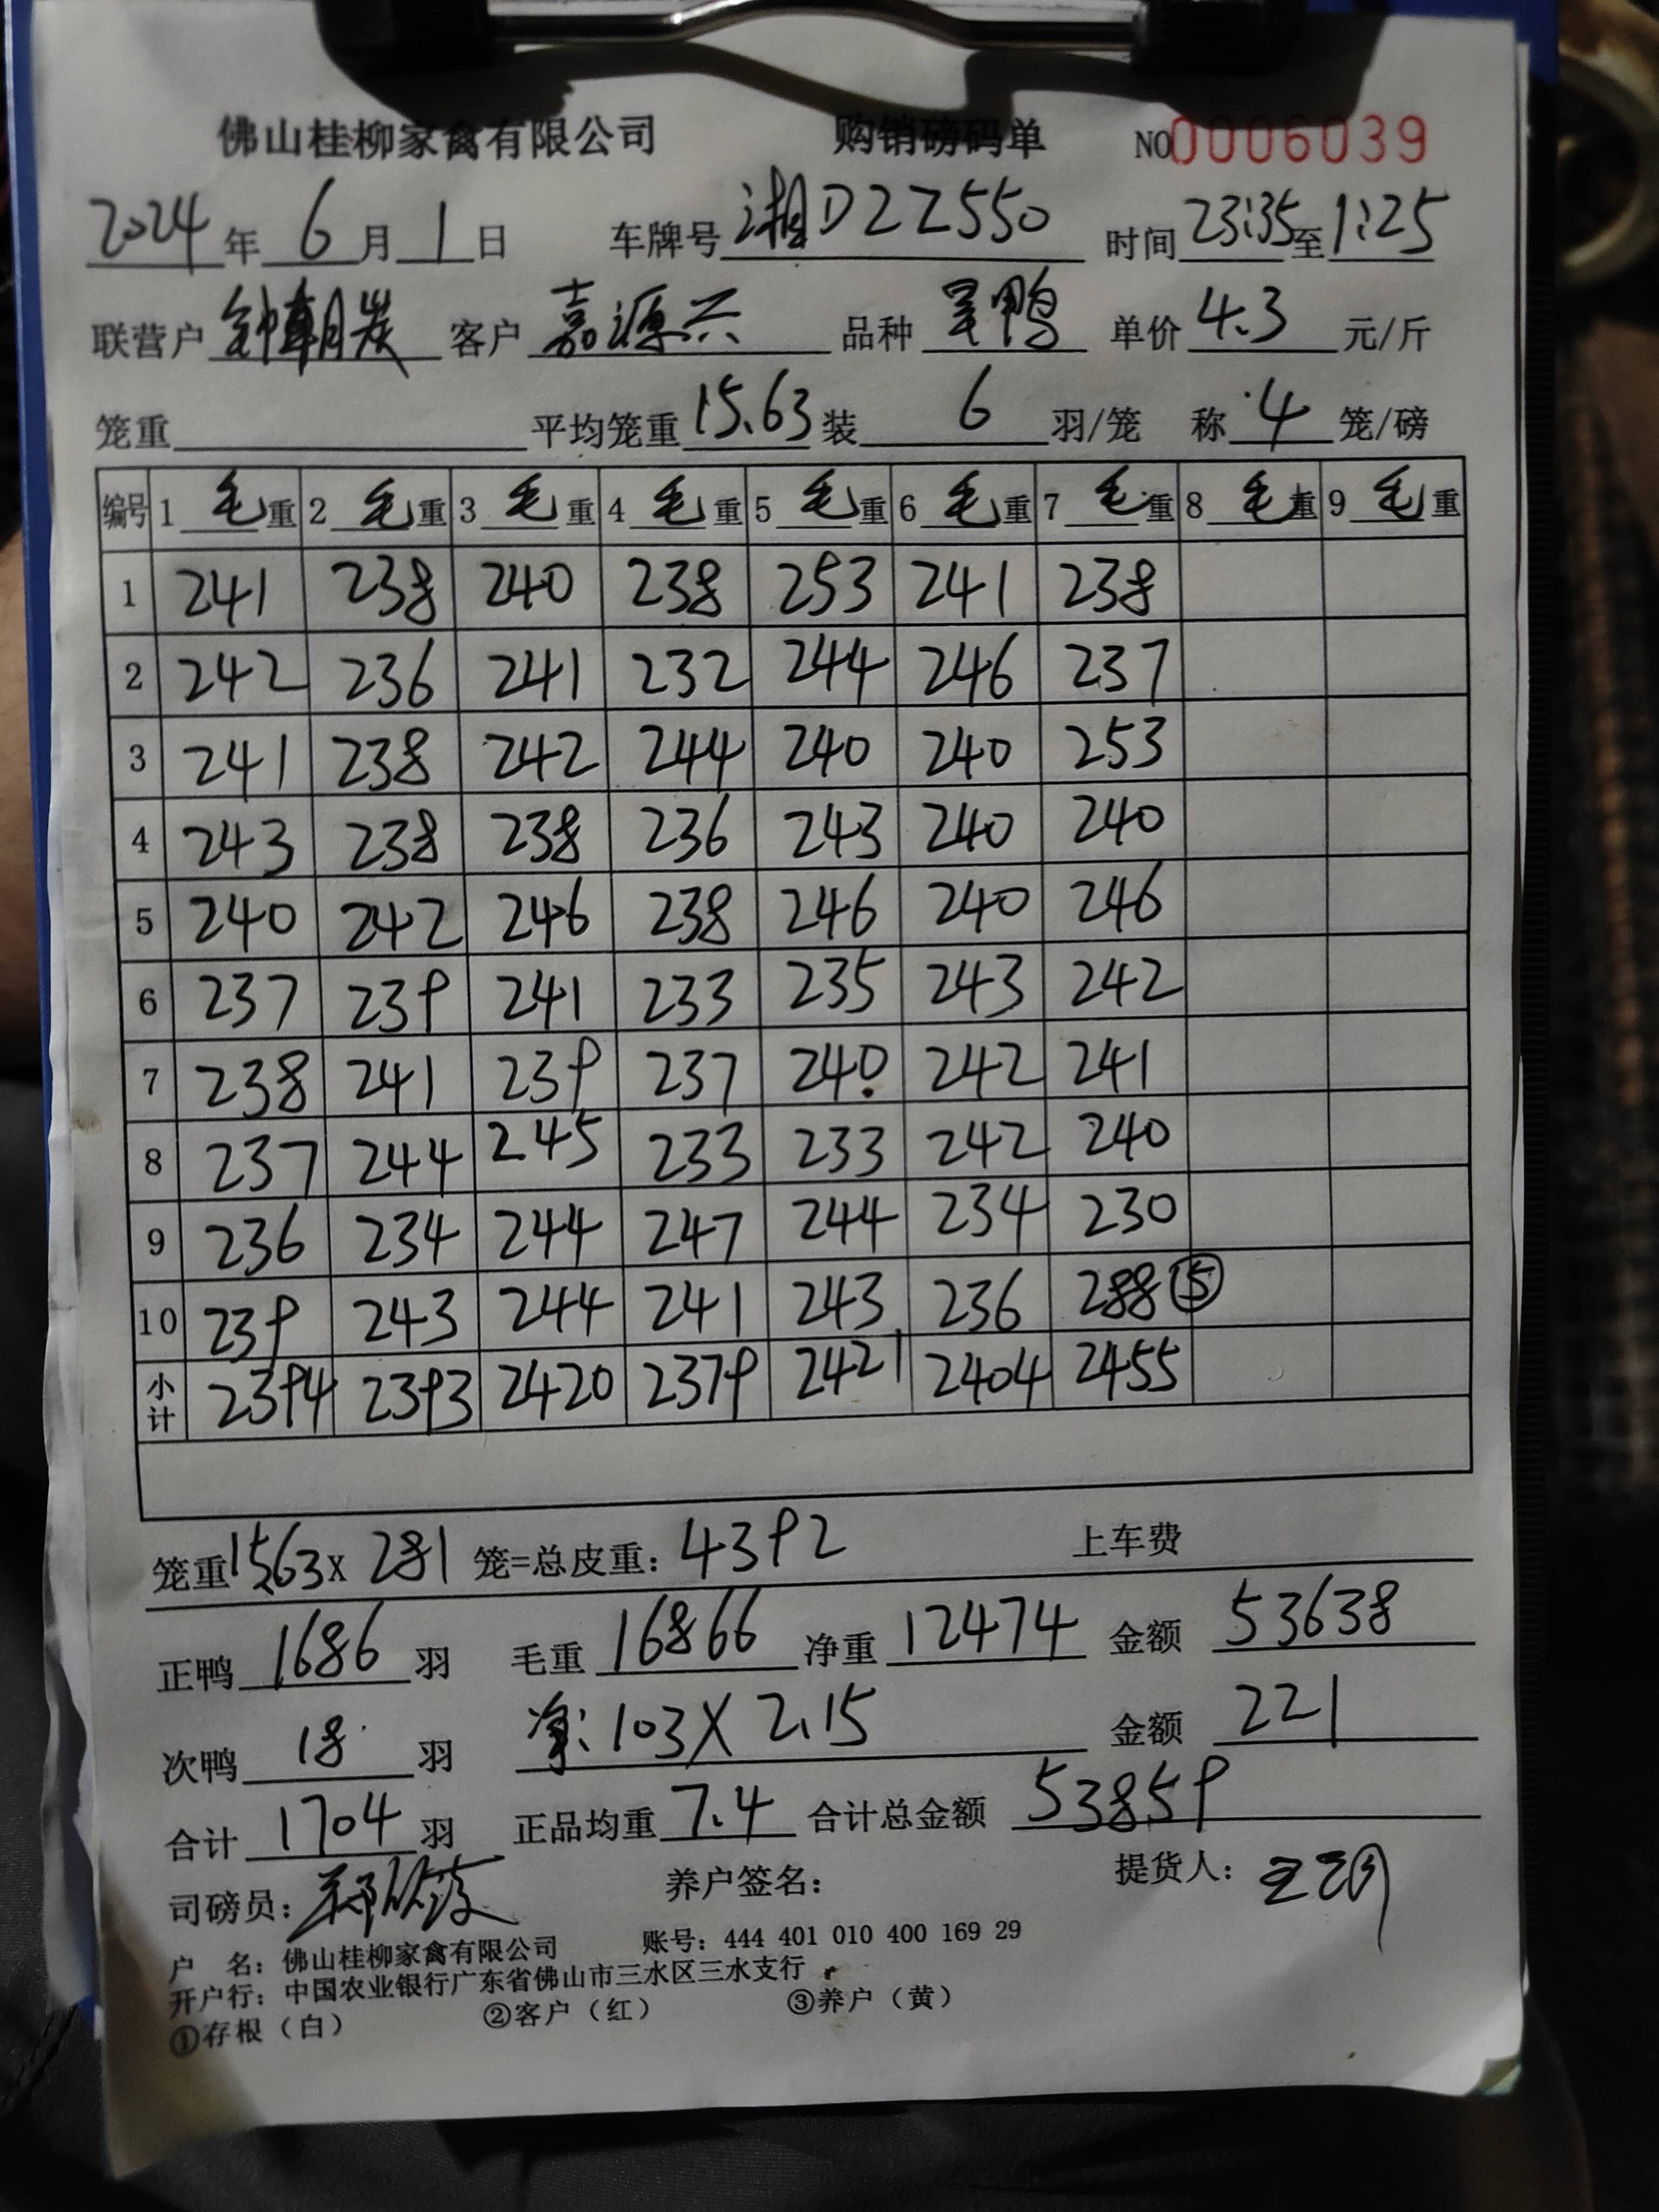 佛山桂柳家禽有限公司 购销磅码单 NO 0006039
2024年6月1日 车牌号 湘D2Z550 时间 23:35至1:25
联营户 钟朝炭 客户 嘉源兴 品种 旱鸭 单价 4.3 元/斤
笼重 平均笼重 15.63 装 6 羽/笼 称 4 笼/磅
编号 1 毛重 2 毛重 3 毛重 4 毛重 5 毛重 6 毛重 7 毛重 8 毛重 9 毛重
1 241 238 240 238 253 241 238
2 242 236 241 232 244 246 237
3 241 238 242 244 240 240 253
4 243 238 238 236 243 240 240
5 240 242 246 238 246 240 246
6 237 239 241 233 235 243 242
7 238 241 239 237 240 242 241
8 237 244 245 233 233 242 240
9 236 234 244 247 244 234 230
10 239 243 244 241 243 236 288 ⑤
小计 2394 2393 2420 2379 2421 2404 2455
笼重 15.63 x 281 笼=总皮重: 4392 上车费
正鸭 1686 羽 毛重 16866 净重 12474 金额 53638
次鸭 18 羽 净: 103 X 2.15 金额 221
合计 1704 羽 正品均重 7.4 合计总金额 53859
司磅员: 养户签名: 提货人:
户 名: 佛山桂柳家禽有限公司 账号: 444 401 010 400 169 29
开户行: 中国农业银行广东省佛山市三水区三水支行
①存根(白) ②客户(红) ③养户(黄)